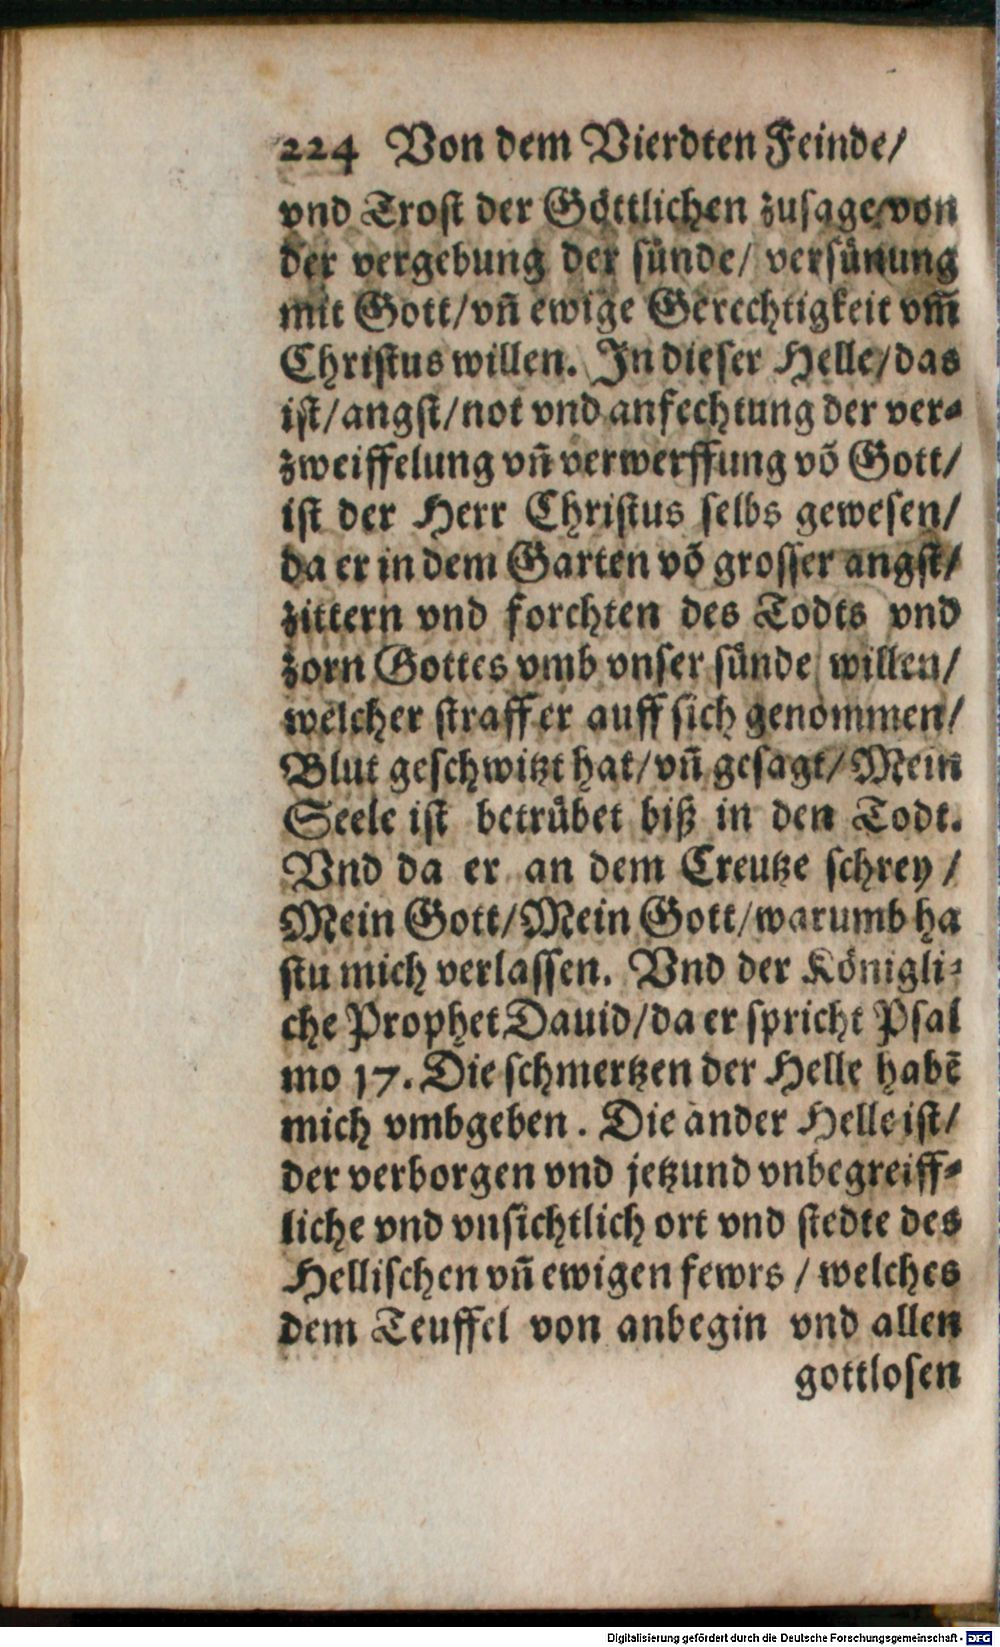 224 Von dem Vierdten Feinde/
vnd Trost der Göttlichen zusage/von
der vergebung der sünde/ versünung
mit Gott/vñ ewige Gerechtigkeit vm̃
Christus willen. In dieser Helle/das
ist/angst/not vnd anfechtung der ver-
zweiffelung vñ verwerffung võ Gott/
ist der Herr Christus selbs gewesen/
da er in dem Garten võ grosser angst/
zittern vnd forchten des Todts vnd
zorn Gottes vmb vnser sünde willen/
welcher straff er auff sich genommen/
Blut geschwitzt hat/vñ gesagt/Mein
Seele ist betrübet biß in den Todt.
Vnd da er an dem Creutze schrey/
Mein Gott/Mein Gott/warumb ha
stu mich verlassen. Vnd der Königli-
che Prophet Dauid/da er spricht Psal
mo 17. Die schmertzen der Helle habē
mich vmbgeben. Die ander Helle ist/
der verborgen vnd jetzund vnbegreiff-
liche vnd vnsichtlich ort vnd stedte des
Hellischen vñ ewigen fewrs/welches
dem Teuffel von anbegin vnd allen
gottlosen
Digitalisierung gefördert durch die Deutsche Forschungsgemeinschaft - DFG